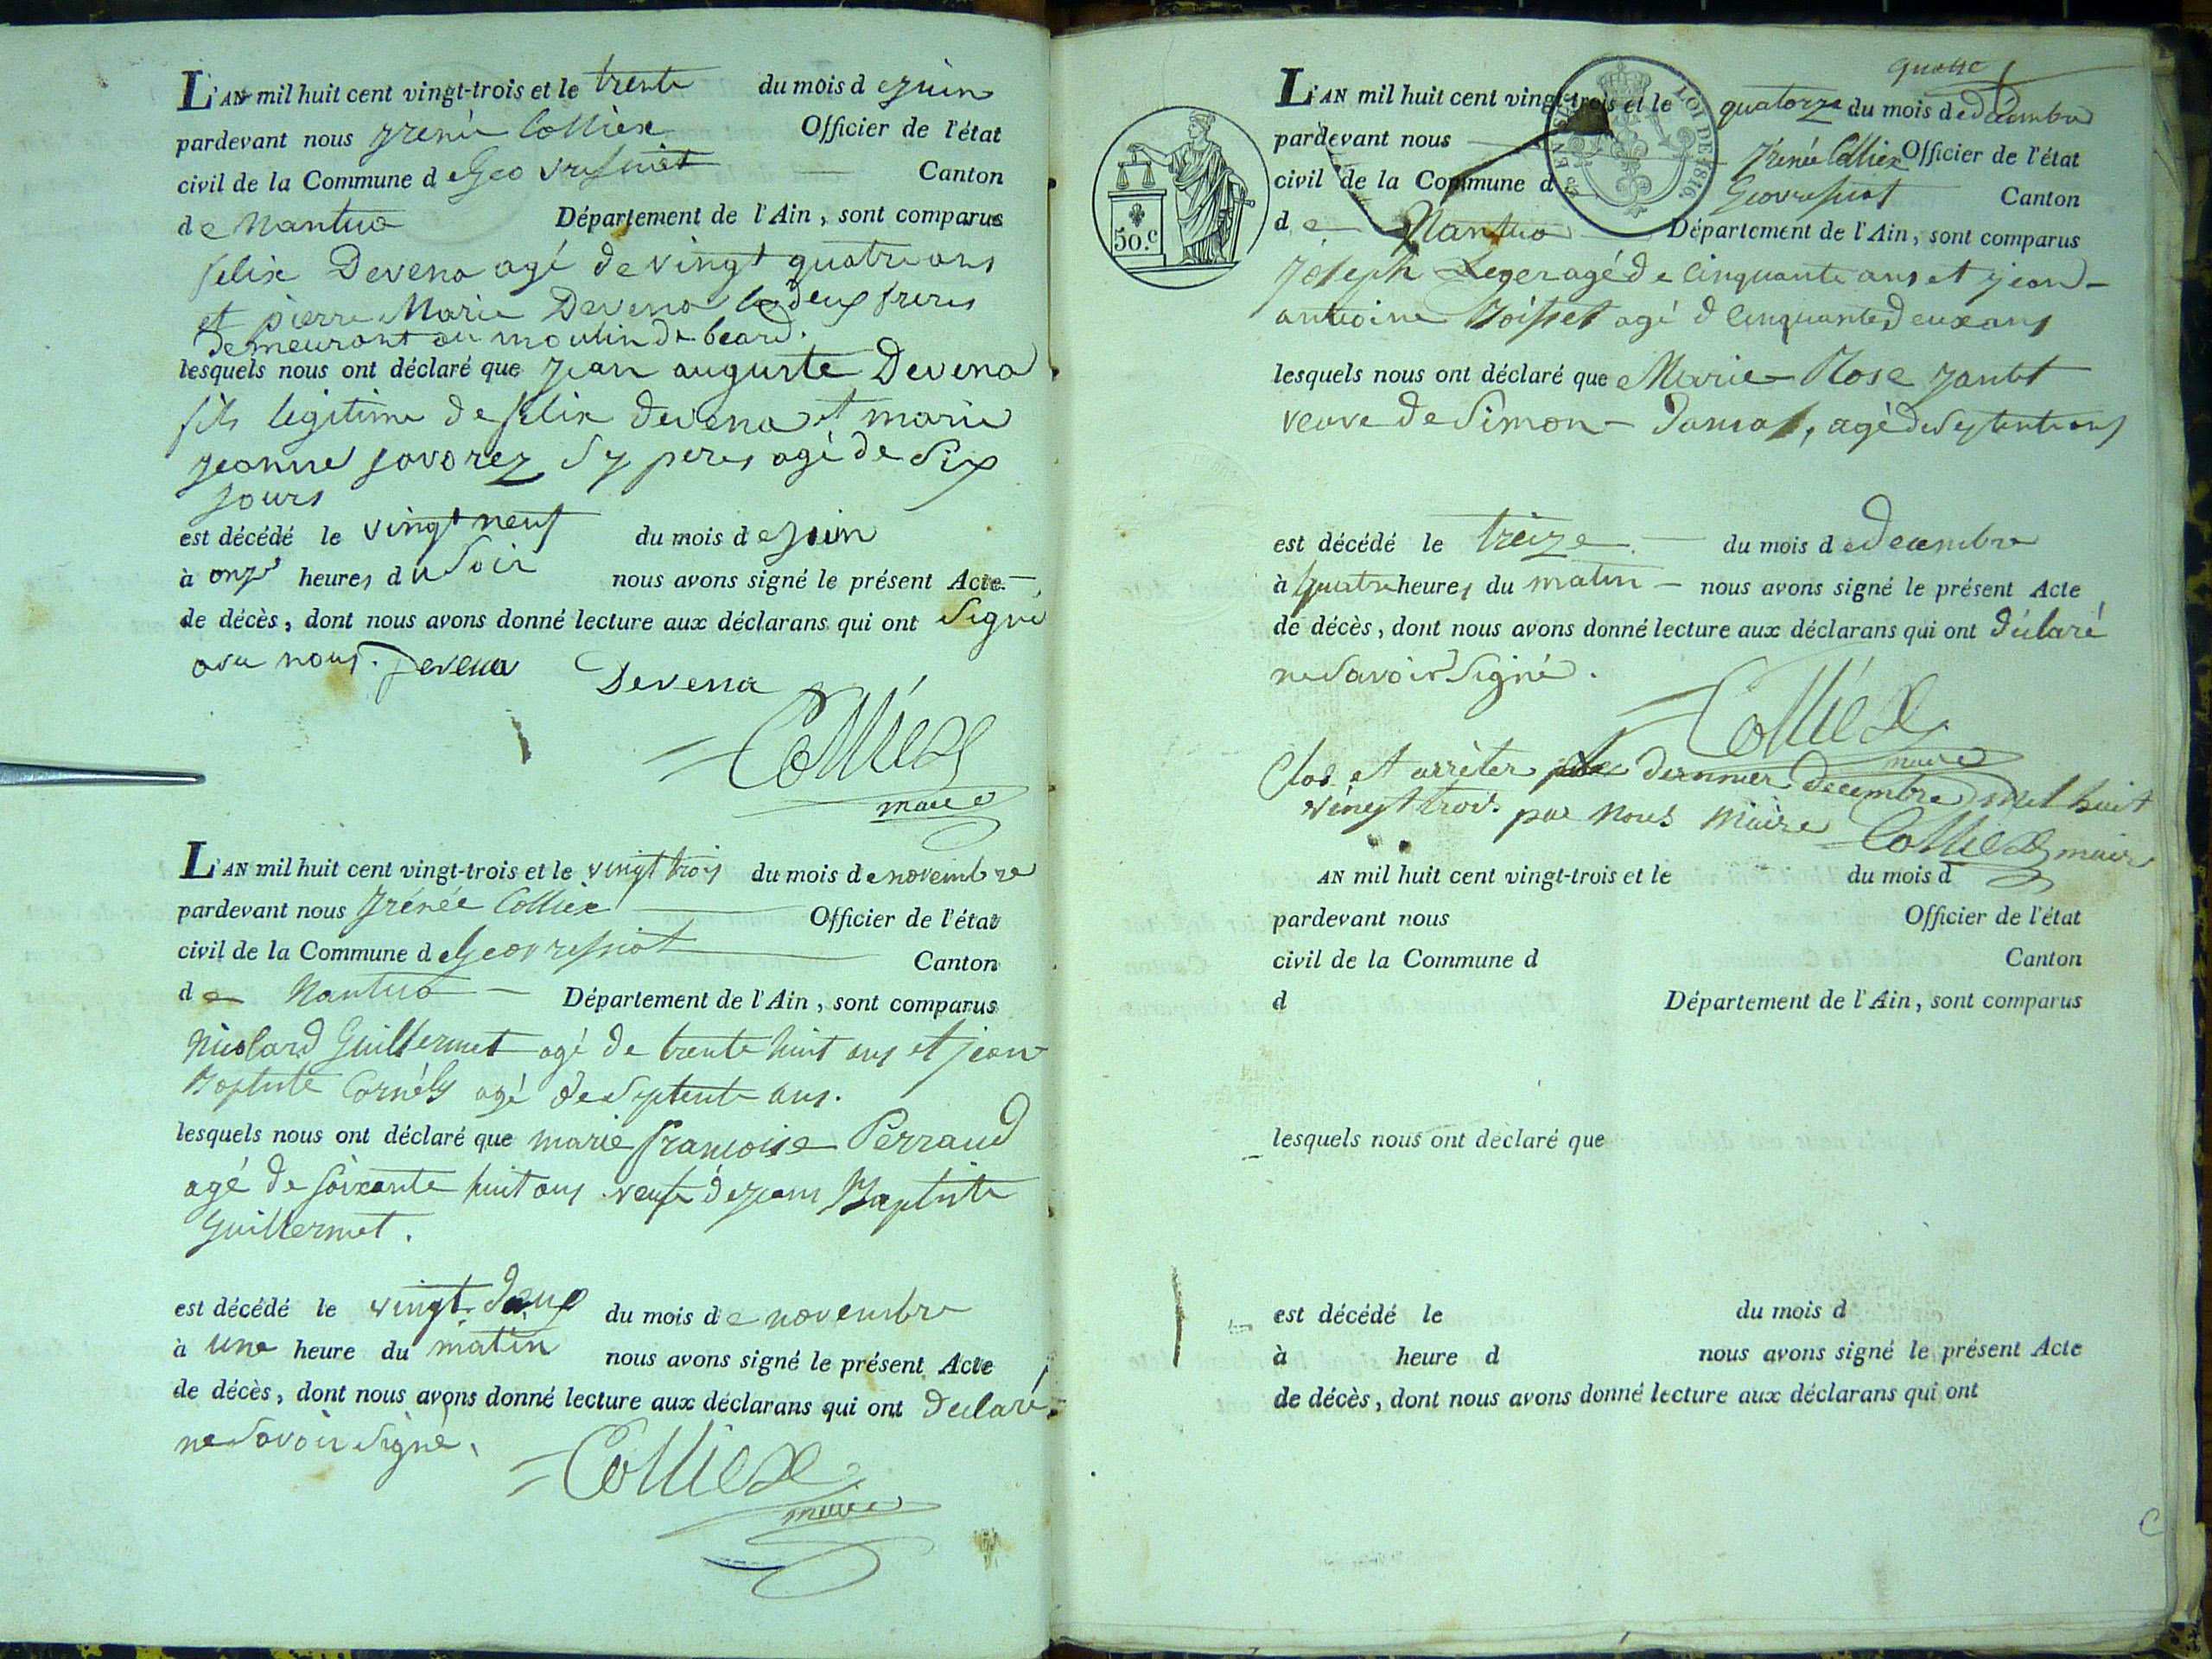 L'AN mil huit cent vingt-trois et le trente du mois de juin
pardevant nous jrenée Colliex Officier de l'état
civil de la Commune de Geovressiat Canton
de Nantua Département de l'Ain, sont comparus
felix Devena agé de vingt quatre ans
et pierre Marie Devena les deux freres
demeurant au moulin de beard.
lesquels nous ont déclaré que jean auguste Devena
fils legitime de felix devena et marie
jeanne savorez agé de six
jours
est décédé le vingt neuf du mois de juin
à onze heures du soir nous avons signé le présent Acte
de décès, dont nous avons donné lecture aux déclarans qui ont signé
avec nous. Devena Devena
Colliex
maire
L'AN mil huit cent vingt-trois et le vingt trois du mois de novembre
pardevant nous jrénée Colliex Officier de l'état
civil de la Commune de Geovressiat Canton
de Nantua Département de l'Ain, sont comparus
Guillermet agé de trente huit ans et jean
Baptiste Cornély agé de septente ans.
lesquels nous ont déclaré que marie françoise Perraud
agé de soixante huit ans veufe de jean Baptiste
Guillermet.
est décédé le vingt deux du mois de novembre
à une heure du matin nous avons signé le présent Acte
de décès, dont nous avons donné lecture aux déclarans qui ont declaré
ne savoir signé.
Colliex
maire
L'AN mil huit cent vingt-trois et le quatorze du mois de décembre
pardevant nous jrénée Colliex Officier de l'état
civil de la Commune d Geovressiat Canton
de Nantua Département de l'Ain, sont comparus
LOI DE 1816.
50.c
joseph Leger agé de cinquante ans et jean
antoine Poisset agé d cinquante deux ans
lesquels nous ont déclaré que Marie Rose
veuve de Simon agé de septente ans
est décédé le treize du mois de decembre
à quatre heures du matin nous avons signé le présent Acte
de décès, dont nous avons donné lecture aux déclarans qui ont déclaré
ne savoir signé.
Colliex
maire
Clos et arrêter dernnier decembre mil huit
vingt trois par nous maire Colliex maire
AN mil huit cent vingt-trois et le du mois d
pardevant nous Officier de l'état
civil de la Commune d Canton
d Département de l'Ain, sont comparus
lesquels nous ont déclaré que
est décédé le du mois d
à heure d nous avons signé le présent Acte
de décès, dont nous avons donné lecture aux déclarans qui ont